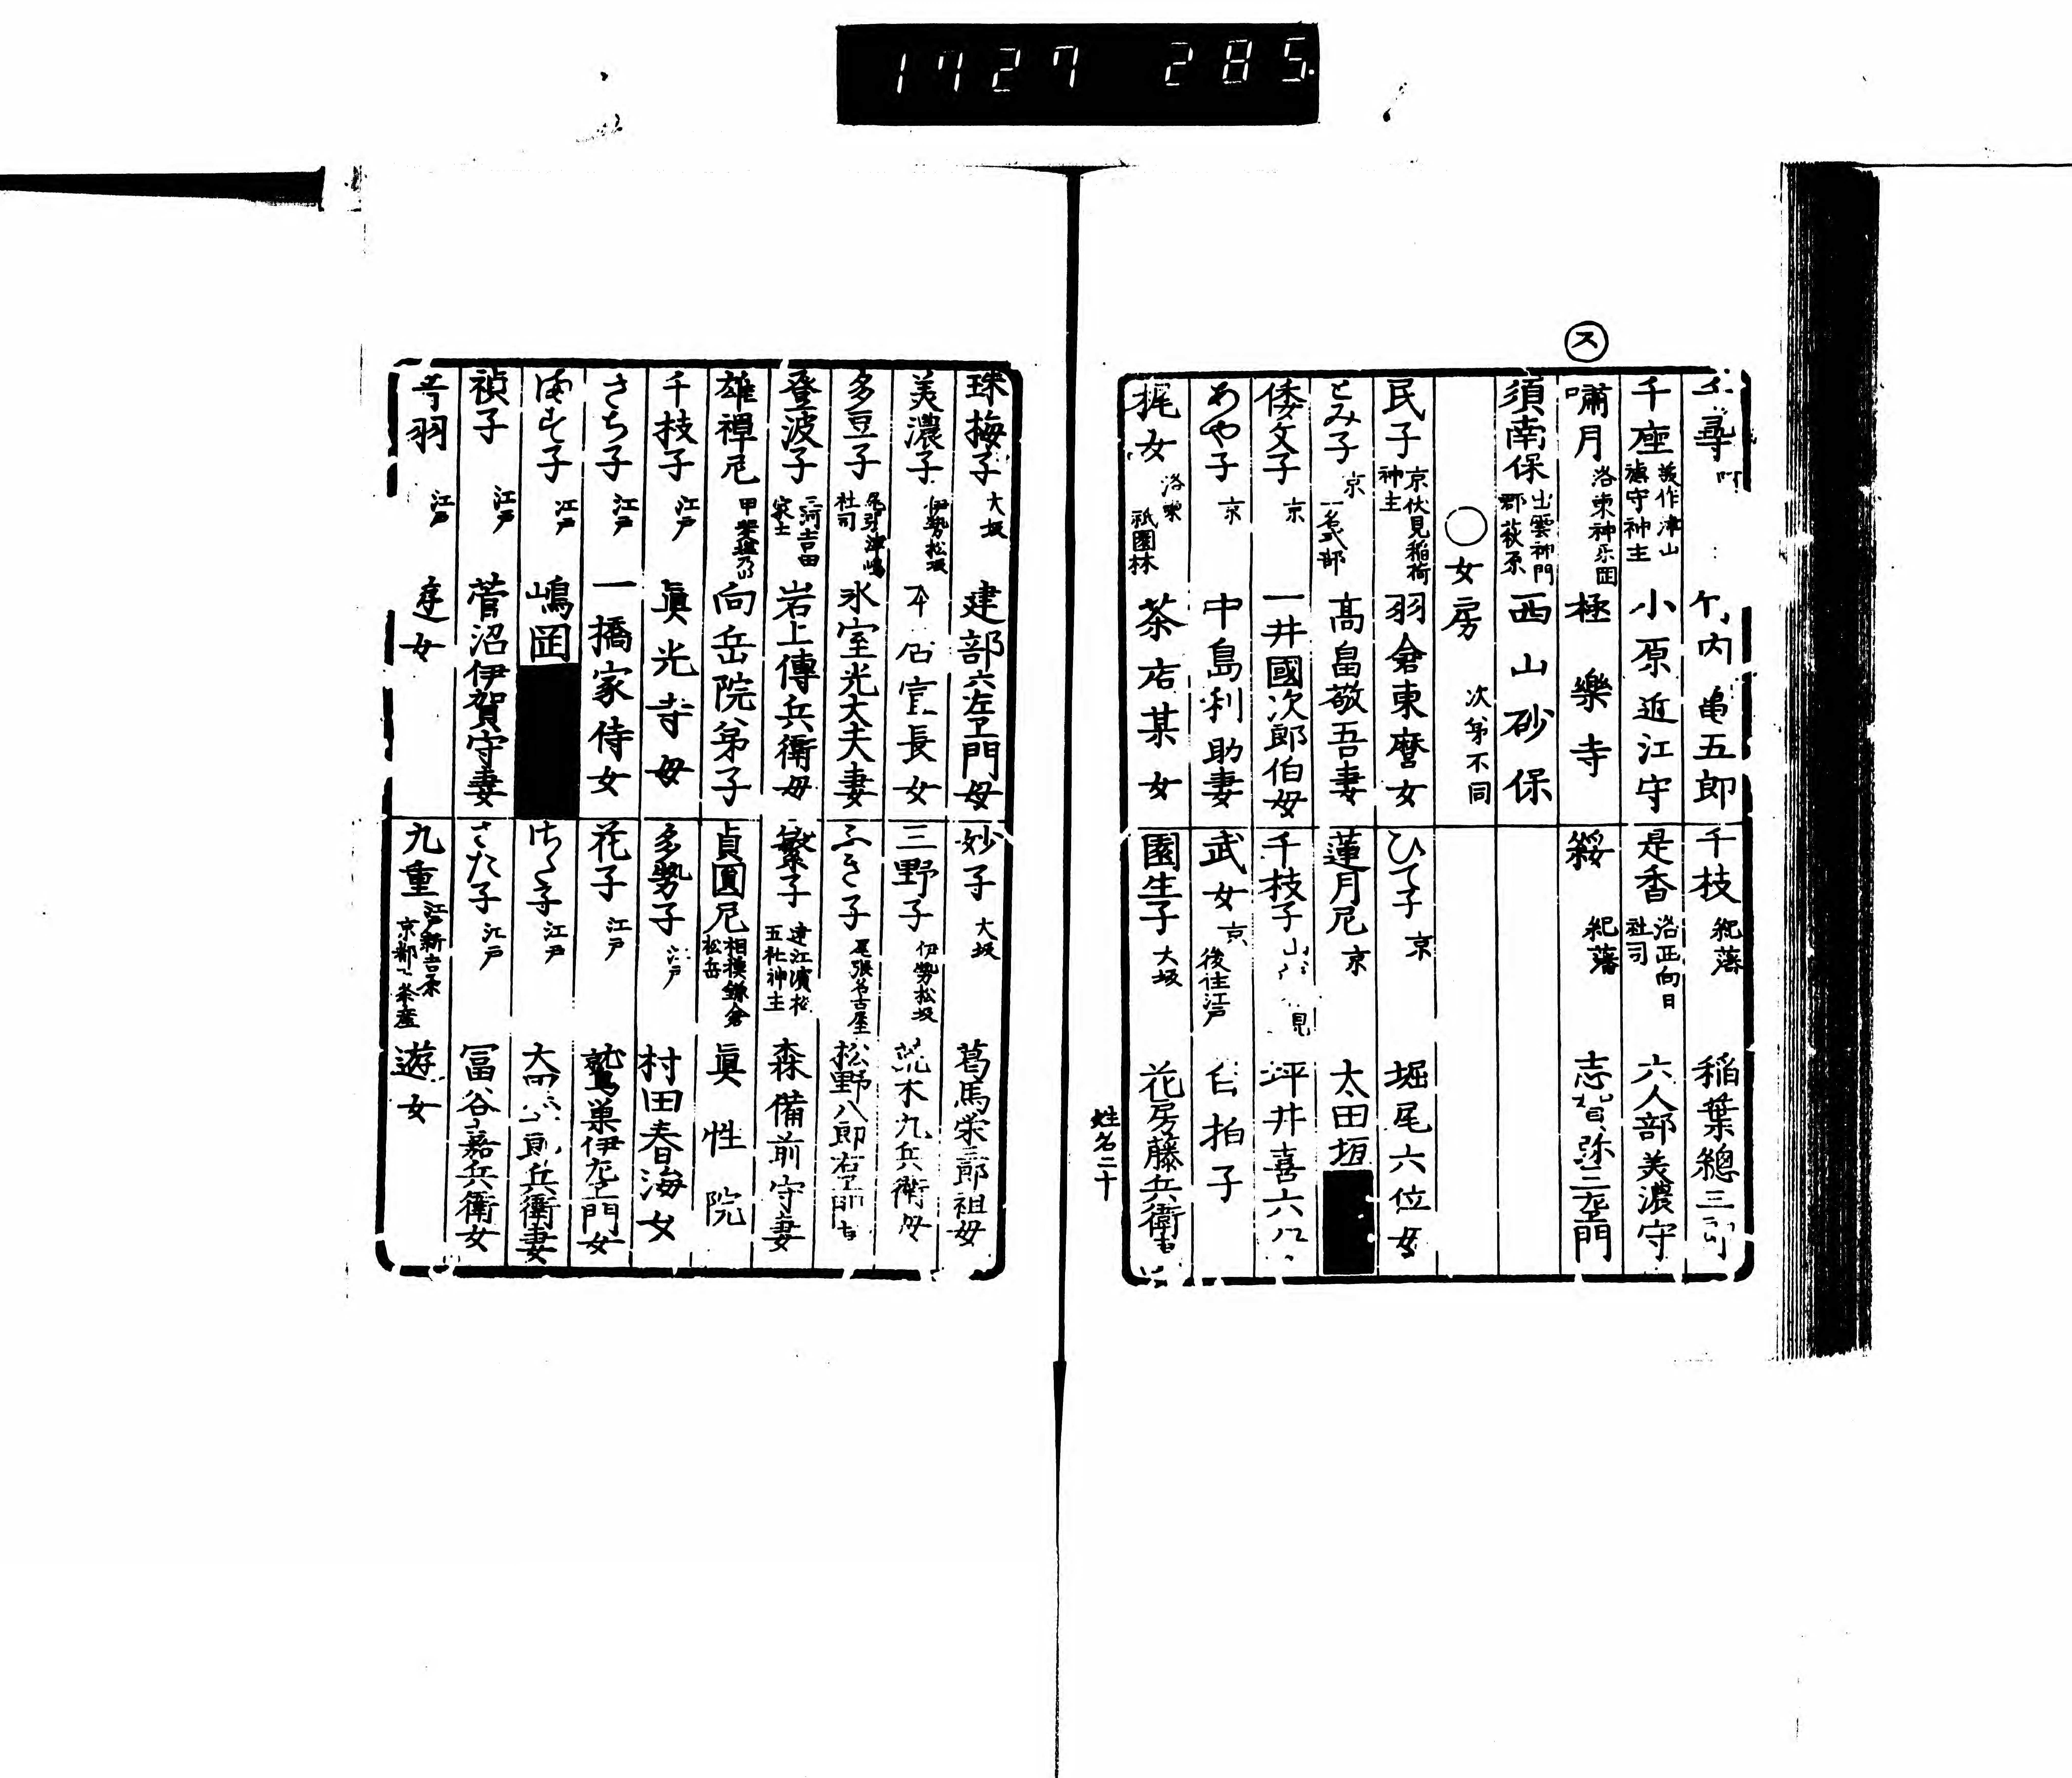 1727 285
千尋
竹内亀五郎
千枝 紀藩 稲葉總三郎
千座 美作津山 神主 小原近江守
是香 洛西向日社司 六人部美濃守
ス
嘯月 洛東神乐岡 極樂寺
綏 紀藩 志賀弥三左ヱ門
須南保 出雲神門郡萩原 西山砂保
○女房 次第不同
民子 京伏見稲荷神主 羽倉東麿女
ひて子 京 堀尾六位女
とみ子 京 一名式部 髙畠敬吾妻
蓮月尼 京 太田垣
倭文子 京 一井國次郎伯母
千枝子 坪井喜六
あや子 京 中島利助妻
武女 京 後住江戸 白拍子
梶女 洛東祇園林 茶店某女
園生子 大坂 花房藤兵衛妻
姓名二十
珠梅子 大坂 建部六左ヱ門母
妙子 大坂 葛馬栄三郎祖母
美濃子 伊勢松坂 本居宣長女
三野子 伊勢松坂 荒木九兵衛母
多豆子 尾張津嶋社司 氷室光大夫妻
ふき子 尾張名古屋 松野八郎右ヱ門
登波子 三河吉田家士 岩上傳兵衛母
繁子 遠江濱松五社神主 森備前守妻
雄禅尼 甲斐塩乃山 向岳院弟子
貞圓尼 相模鎌倉松岳 眞性院
千枝子 江戸 眞光寺母
多勢子 江戸 村田春海女
さち子 江戸 一橋家侍女
花子 江戸 鷲巣伊左ヱ門女
ます子 江戸 嶋岡
ちく子 江戸 郎兵衛妻
禎子 江戸 菅沼伊賀守妻
さた子 江戸 冨谷嘉兵衛女
羽 江戸 遊女
九重 江戸新吉原 京都一条産 遊女